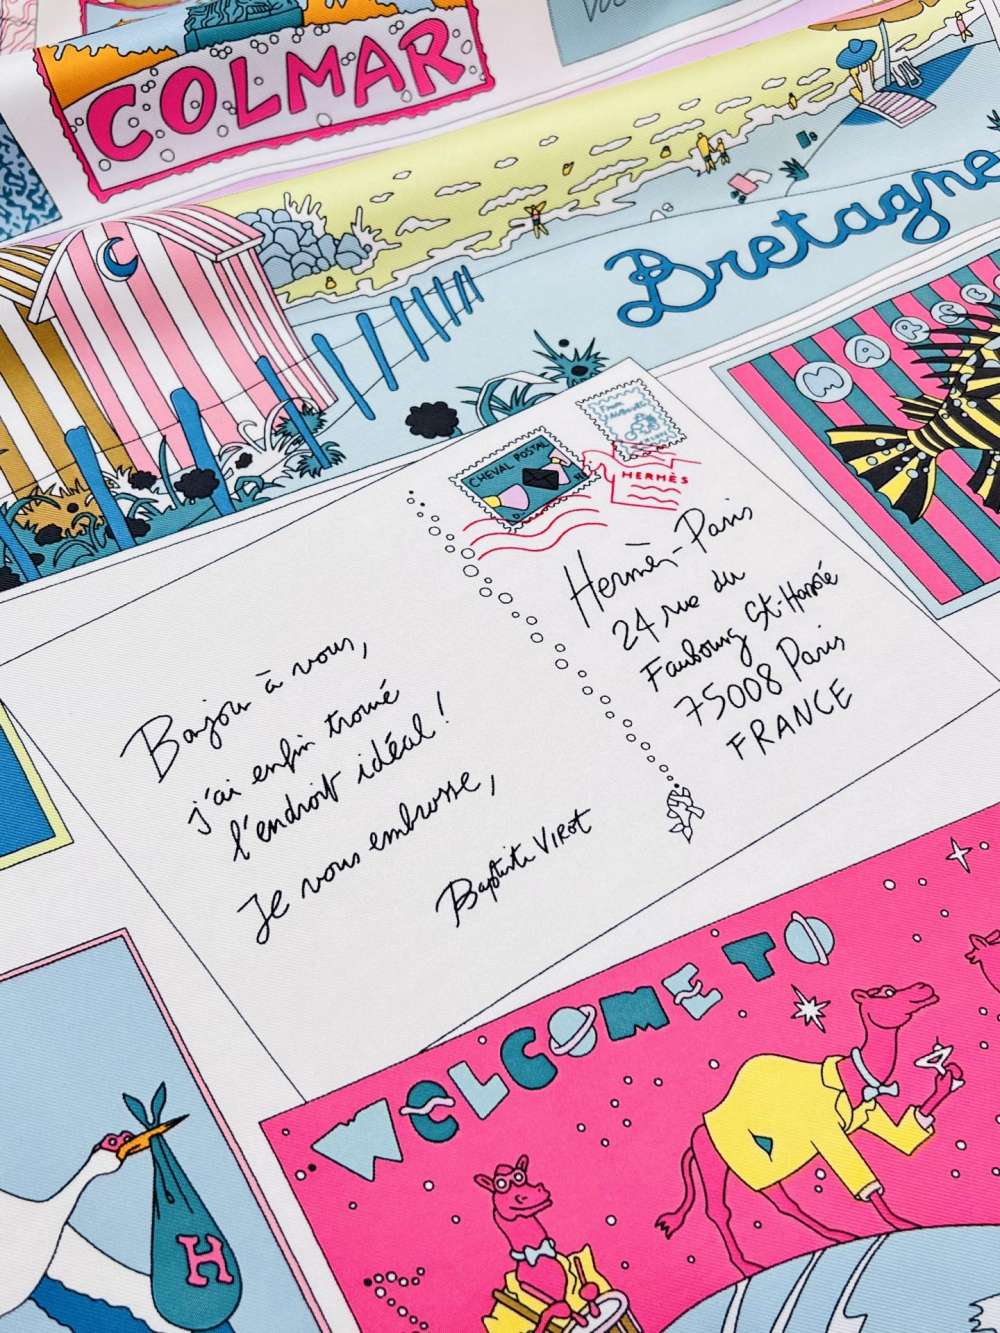 COLMAR
Bretagne
MARSE
CHEVAL POSTAL
HERMÈS
Bonjour à vous,
j'ai enfin trouvé
l'endroit idéal !
Je vous embrasse,
Baptiste VIROT
Hermès-Paris
24 rue du
Faubourg St-Honoré
75008 Paris
FRANCE
WELCOME TO
H